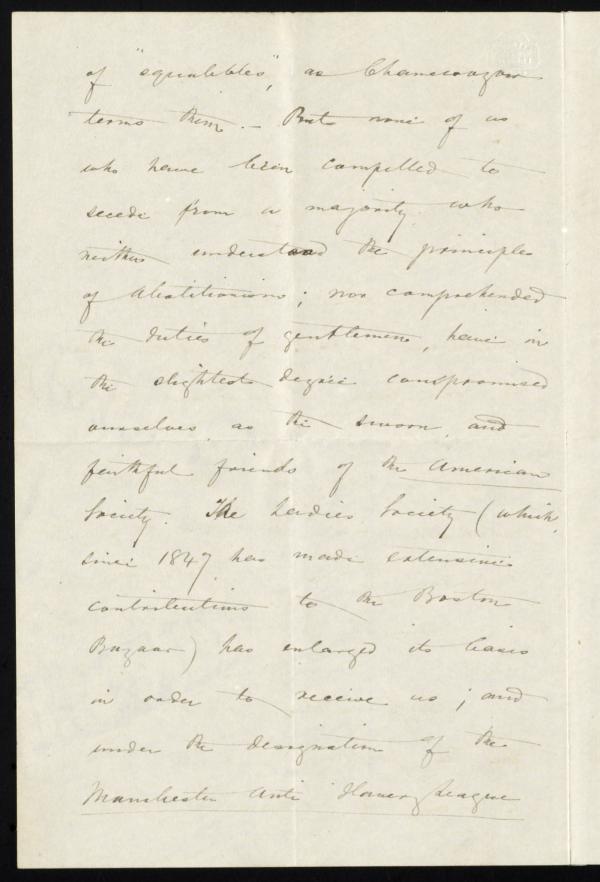 of "squabbles", as Chamerovzow
terms them. — But none of us
who have been compelled to
secede from a majority who
neither understood the principles
of Abolitionism; nor comprehended
the duties of gentlemen, have in
the slightest degree compromised
ourselves as the sworn and
faithful friends of the American
Society. The Ladies Society (which,
since 1847 has made extensive
contributions to the Boston
Bazaar) has enlarged its basis
in order to receive us; and
under the designation of the
Manchester Anti Slavery League